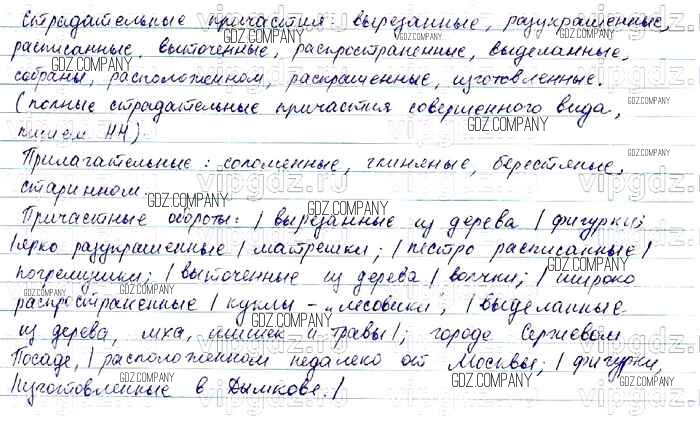 Страдательные причастия: вырезанные, разукрашенные,
расписанные, выточенные, распространенные, выделанные,
собраны, расположенном, раскрашенные, изготовленные.
(полные страдательные причастия совершенного вида,
пишем НН).
Прилагательные: соломенные, глиняные, берестяные,
старинном.
Причастные обороты: | вырезанные из дерева | фигурки;
| ярко разукрашенные | матрешки; | пестро расписанные |
погремушки; | выточенные из дерева | волчки; | широко
распространенные | куклы – „лесовики"; | выделанные
из дерева, мха, шишек и травы |; городе Сергиевом
Посаде, | расположенном недалеко от Москвы; | фигурки,
| изготовленные в Дымкове. |